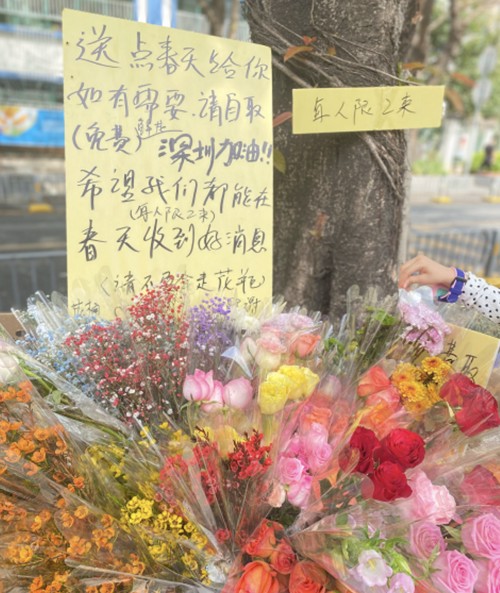 送点春天给你
如有需要.请自取
(免费)
深圳加油!!
希望我们都能在
(每人限2束)
春天收到好消息
每人限2束